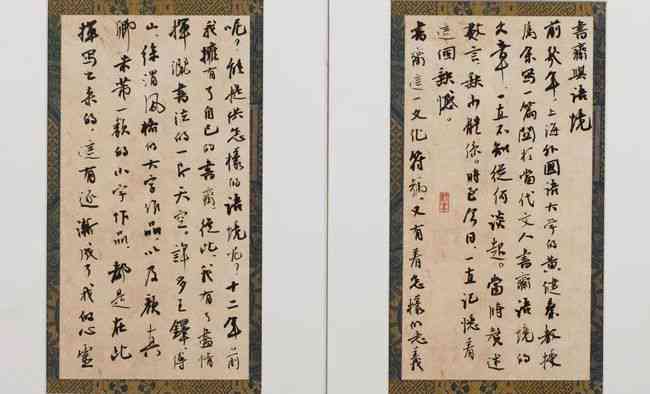 書齋與語境
前幾年,上海外國語大學的黃健秦教授
属余寫一篇關於當代文人書齋語境的
文章,一直不知從何談起。當時贅述
數言,缺少體係。時至今日一直記憶着
這個缺憾。
書齋這一文化符號,又有着怎樣的意義
呢?能提供怎樣的語境呢?十二年前
我擁有了自己的書齋,從此,我有了盡情
揮灑書法的一片天空。許多王鐸傅
山、徐渭風格的大字作品,以及顏真
卿米芾一款的小字作品,都是在此
揮寫出來的,這有逐漸成了我的心靈